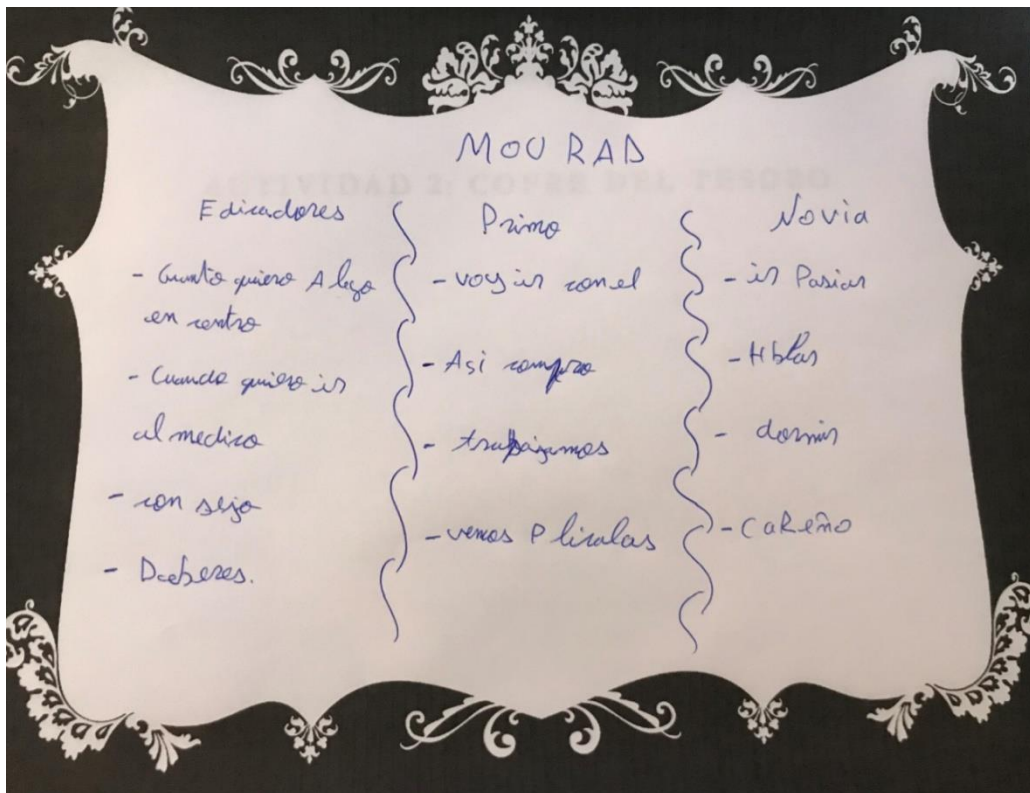 MOURAD
ACTIVIDAD 2: COFRE DEL TESORO
Edicadores
- Cuanto quiero Algo
en centro
- Cuando quiero ir
al medico
- con sejo
- Daeberes.
Primo
- voy ir con el
- Asi compro
- trabajamos
- vemos Pliculas
Novia
- ir Pasiar
- Hblar
- dormir
- CaReño